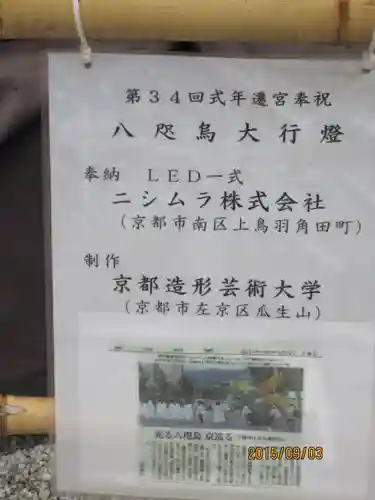 第34回式年遷宮奉祝
八咫烏大行燈
奉納 LED一式
ニシムラ株式会社
(京都市南区上鳥羽角田町)
制作
京都造形芸術大学
(京都市左京区瓜生山)
光る八咫烏 京巡る
2015/09/03